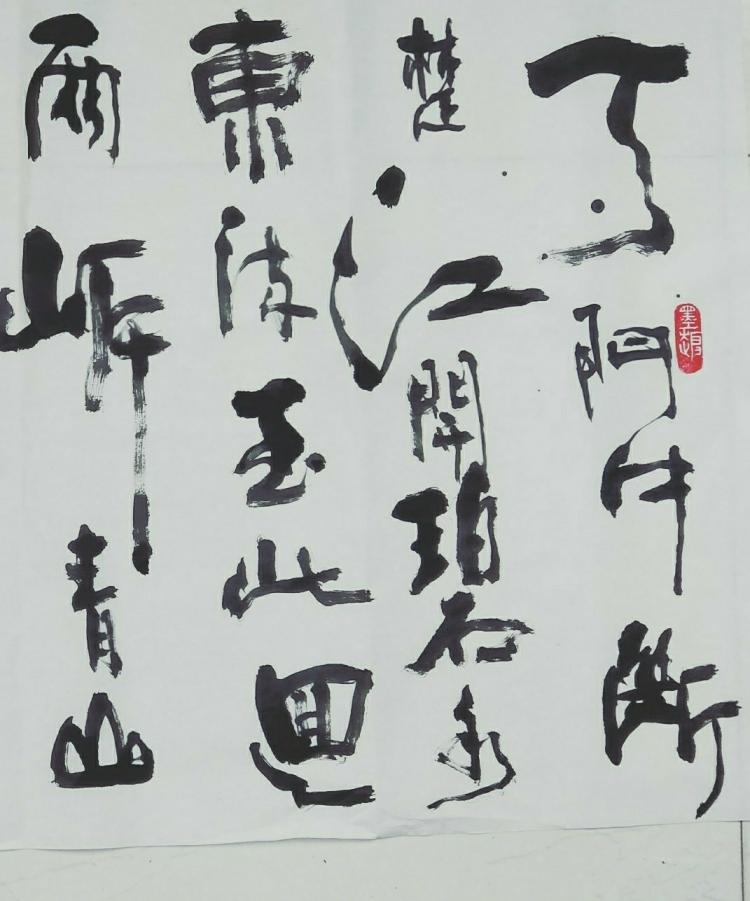 天門中斷
楚江開碧水
東流至此迴
兩岸青山